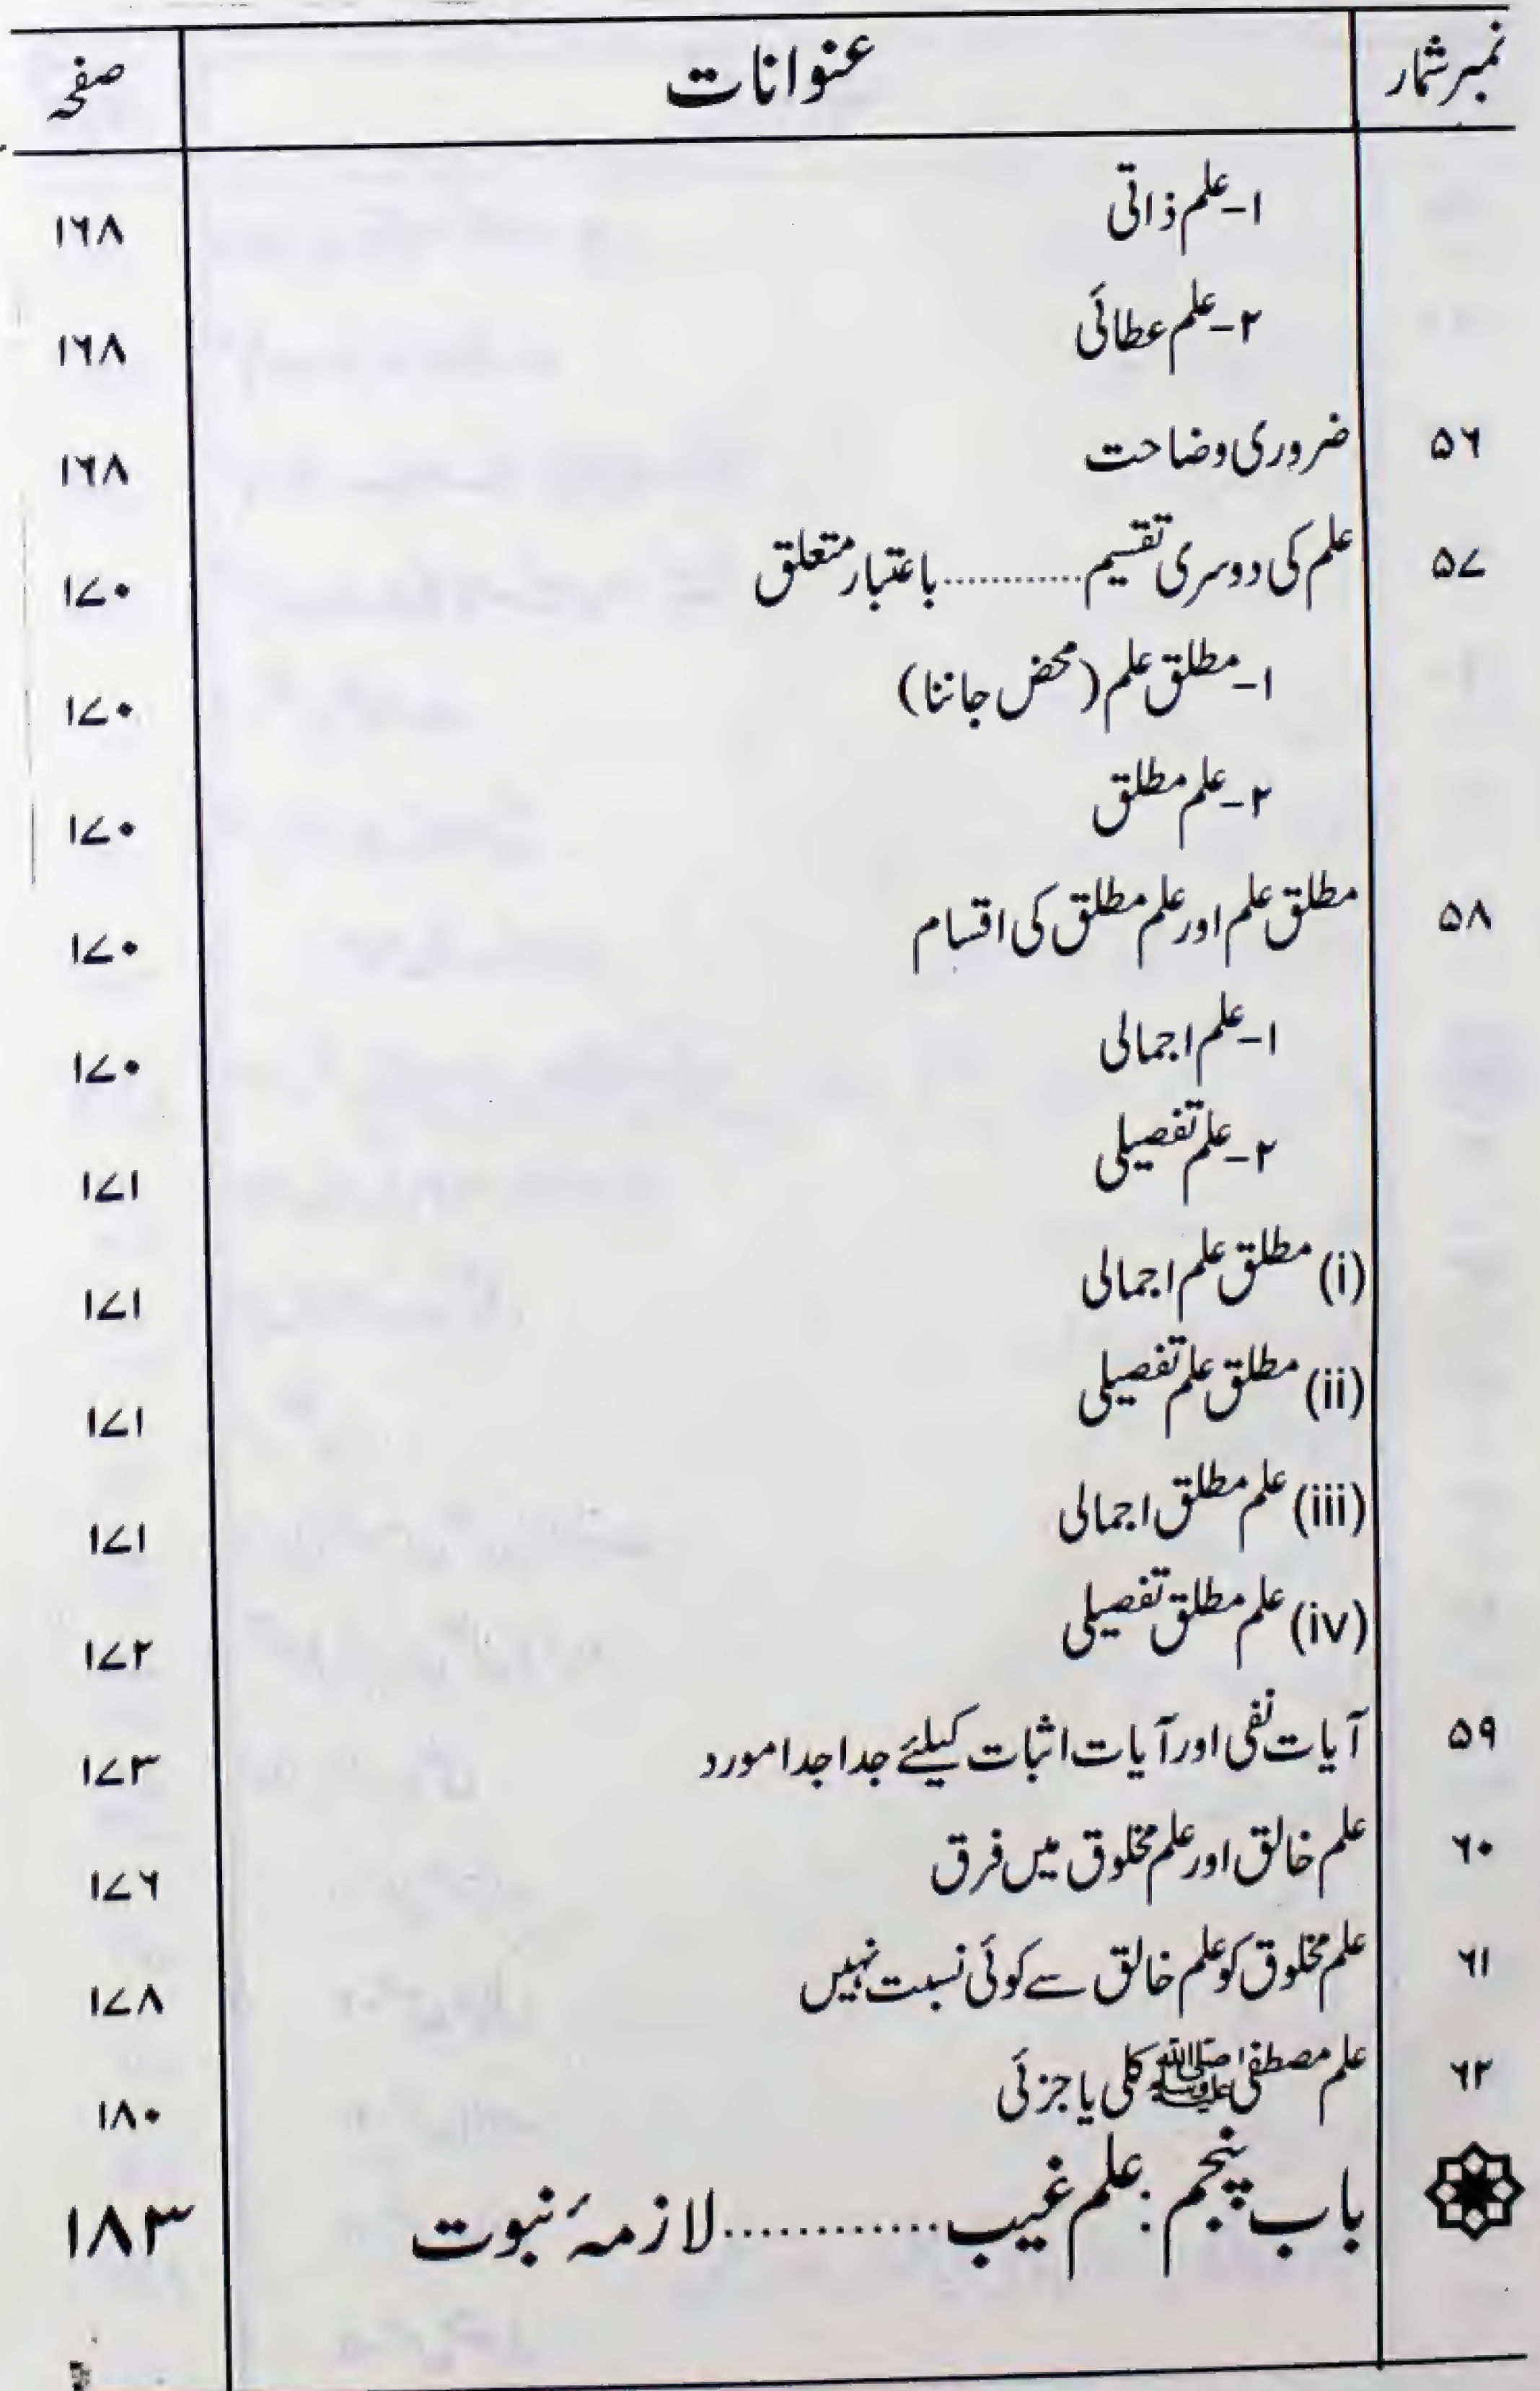 نمبر شمار عنوانات صفحہ
۱- علم ذاتی ۱۶۸
۲- علم عطائی ۱۶۸
۵۶ ضروری وضاحت ۱۶۸
۵۷ علم کی دوسری تقسیم............باعتبار متعلق ۱۷۰
۱- مطلق علم (محض جاننا) ۱۷۰
۲- علم مطلق ۱۷۰
۵۸ مطلق علم اور علم مطلق کی اقسام ۱۷۰
۱- علم اجمالی ۱۷۰
۲- علم تفصیلی ۱۷۱
(i) مطلق علم اجمالی ۱۷۱
(ii) مطلق علم تفصیلی ۱۷۱
(iii) علم مطلق اجمالی ۱۷۱
(iv) علم مطلق تفصیلی ۱۷۲
۵۹ آیات نفی اور آیات اثبات کیلئے جدا جدا مورد ۱۷۳
۶۰ علم خالق اور علم مخلوق میں فرق ۱۷۶
۶۱ علم مخلوق کو علم خالق سے کوئی نسبت نہیں ۱۷۸
۶۲ علم مصطفیٰ ﷺ کلی یا جزئی ۱۸۰
باب پنجم : علم غیب............لازمۂ نبوت ۱۸۳